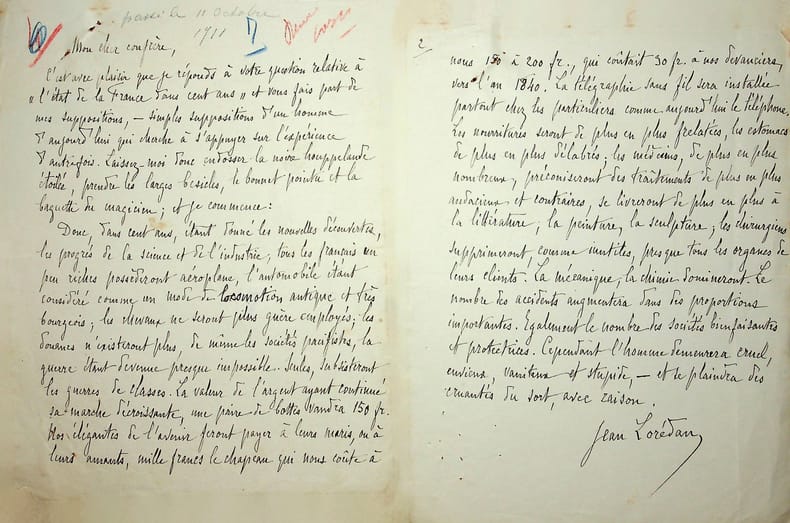 passé le 11 octobre
1911
Mon cher confrère,
C'est avec plaisir que je réponds à votre question relative à
"l'état de la France dans cent ans" et vous fais part de
mes suppositions, – simples suppositions d'un homme
d'aujourd'hui qui cherche à s'appuyer sur l'expérience
d'autrefois. Laissez-moi donc endosser la noire houppelande
étoilée, prendre les larges besicles, le bonnet pointu et la
baguette du magicien ; et je commence :
Donc, dans cent ans, étant donné les nouvelles découvertes,
les progrès de la science et de l'industrie, tous les français un
peu riches posséderont aéroplane, l'automobile étant
considéré comme un mode de locomotion antique et très
bourgeois ; les chevaux ne seront plus guère employés ; les
douanes n'existeront plus, de même les sociétés pacifistes, la
guerre étant devenue presque impossible. Seules, subsisteront
les guerres de classes. La valeur de l'argent ayant continué
sa marche décroissante, une paire de bottes vaudra 150 fr.
Nos élégantes de l'avenir feront payer à leurs maris, ou à
leurs amants, mille francs le chapeau qui nous coûte à
2
nous 150 à 200 fr., qui coûtait 30 fr. à nos devanciers,
vers l'an 1840. La télégraphie sans fil sera installée
partout chez les particuliers comme aujourd'hui le téléphone.
Les nourritures seront de plus en plus frelatées, les estomacs
de plus en plus délabrés ; les médecins, de plus en plus
nombreux, préconiseront des traitements de plus en plus
audacieux et contraires, se livreront de plus en plus à
la littérature, la peinture, la sculpture ; les chirurgiens
supprimeront, comme inutiles, presque tous les organes de
leurs clients. La mécanique, la chimie domineront. Le
nombre des accidents augmentera dans des proportions
importantes. Egalement le nombre des sociétés bienfaisantes
et protectrices. Cependant l'homme demeurera cruel,
envieux, vaniteux – et stupide, – et se plaindra des
cruautés du sort, avec raison.
Jean Lorédan